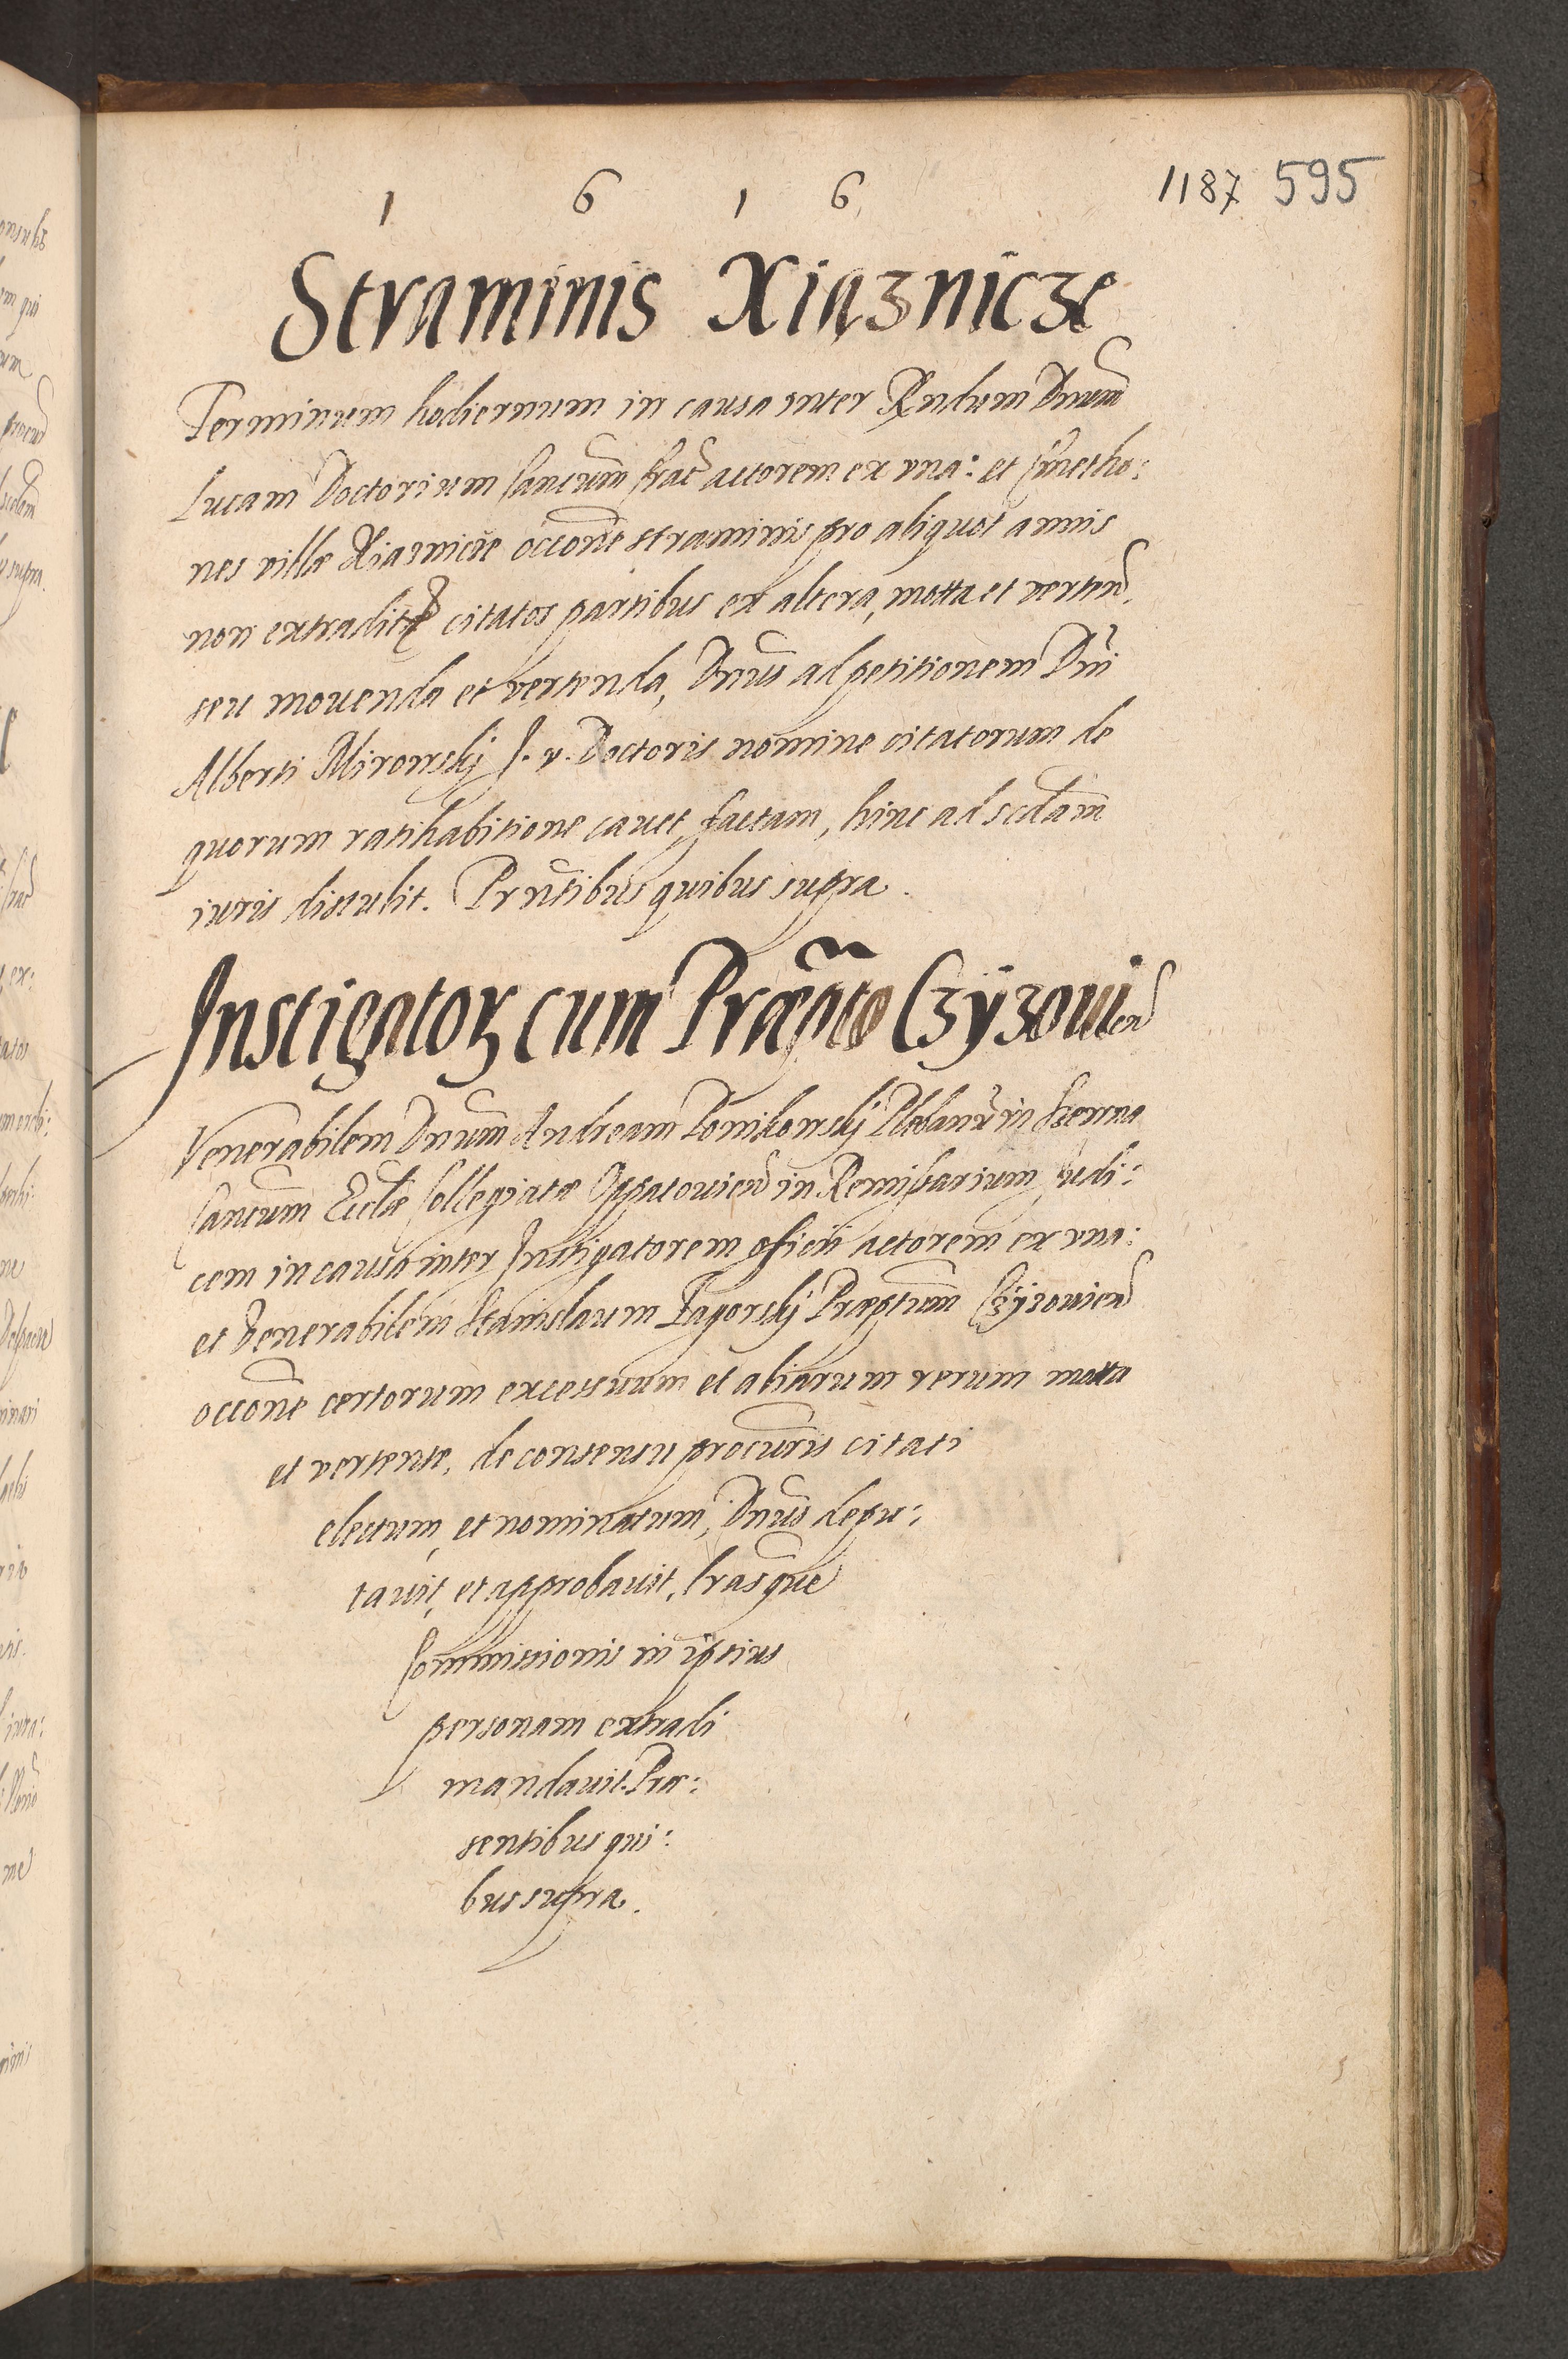 1 6 1 6
1187 595
Straminis Xiaznicze
Terminum hodiernum in causa inter Rndum Dnum
Lucam Doctorium Cancum Crac actorem ex vna: et Cmetho:
nes villæ Xiaznicze occone straminis pro aliquot annis
non extraditi citatos partibus ex altera, motta et verten,
seu mouenda et vertenda, Dnus ad petitionem Dni
Alberti Mirowskj J. v. Doctoris nomine citatorum de
quorum ratihabitione cauet, factam, hinc ad scdam
iuris distulit. Prntibus quibus supra.
Instigator cum Præpto Czÿzouien
Venerabilem Dnum Andream Pomikowskj Plebanum in
Cancum Eccle Collegiatæ Oppatouien in Remissarium Judi:
cem in causa inter Instigatorem officii actorem ex vna:
et Venerabilem Stanislaum Zagorskj Præptum Czÿzouien
occone certorum excessuum et aliarum rerum motta
et vertente, de consensu procuris citati
electum, et nominatum, Dnus depu:
tauit, et approbauit, lrasque
Commissionis in ipsius
personam extradi
mandauit. Præ:
sentibus qui:
bus supra.